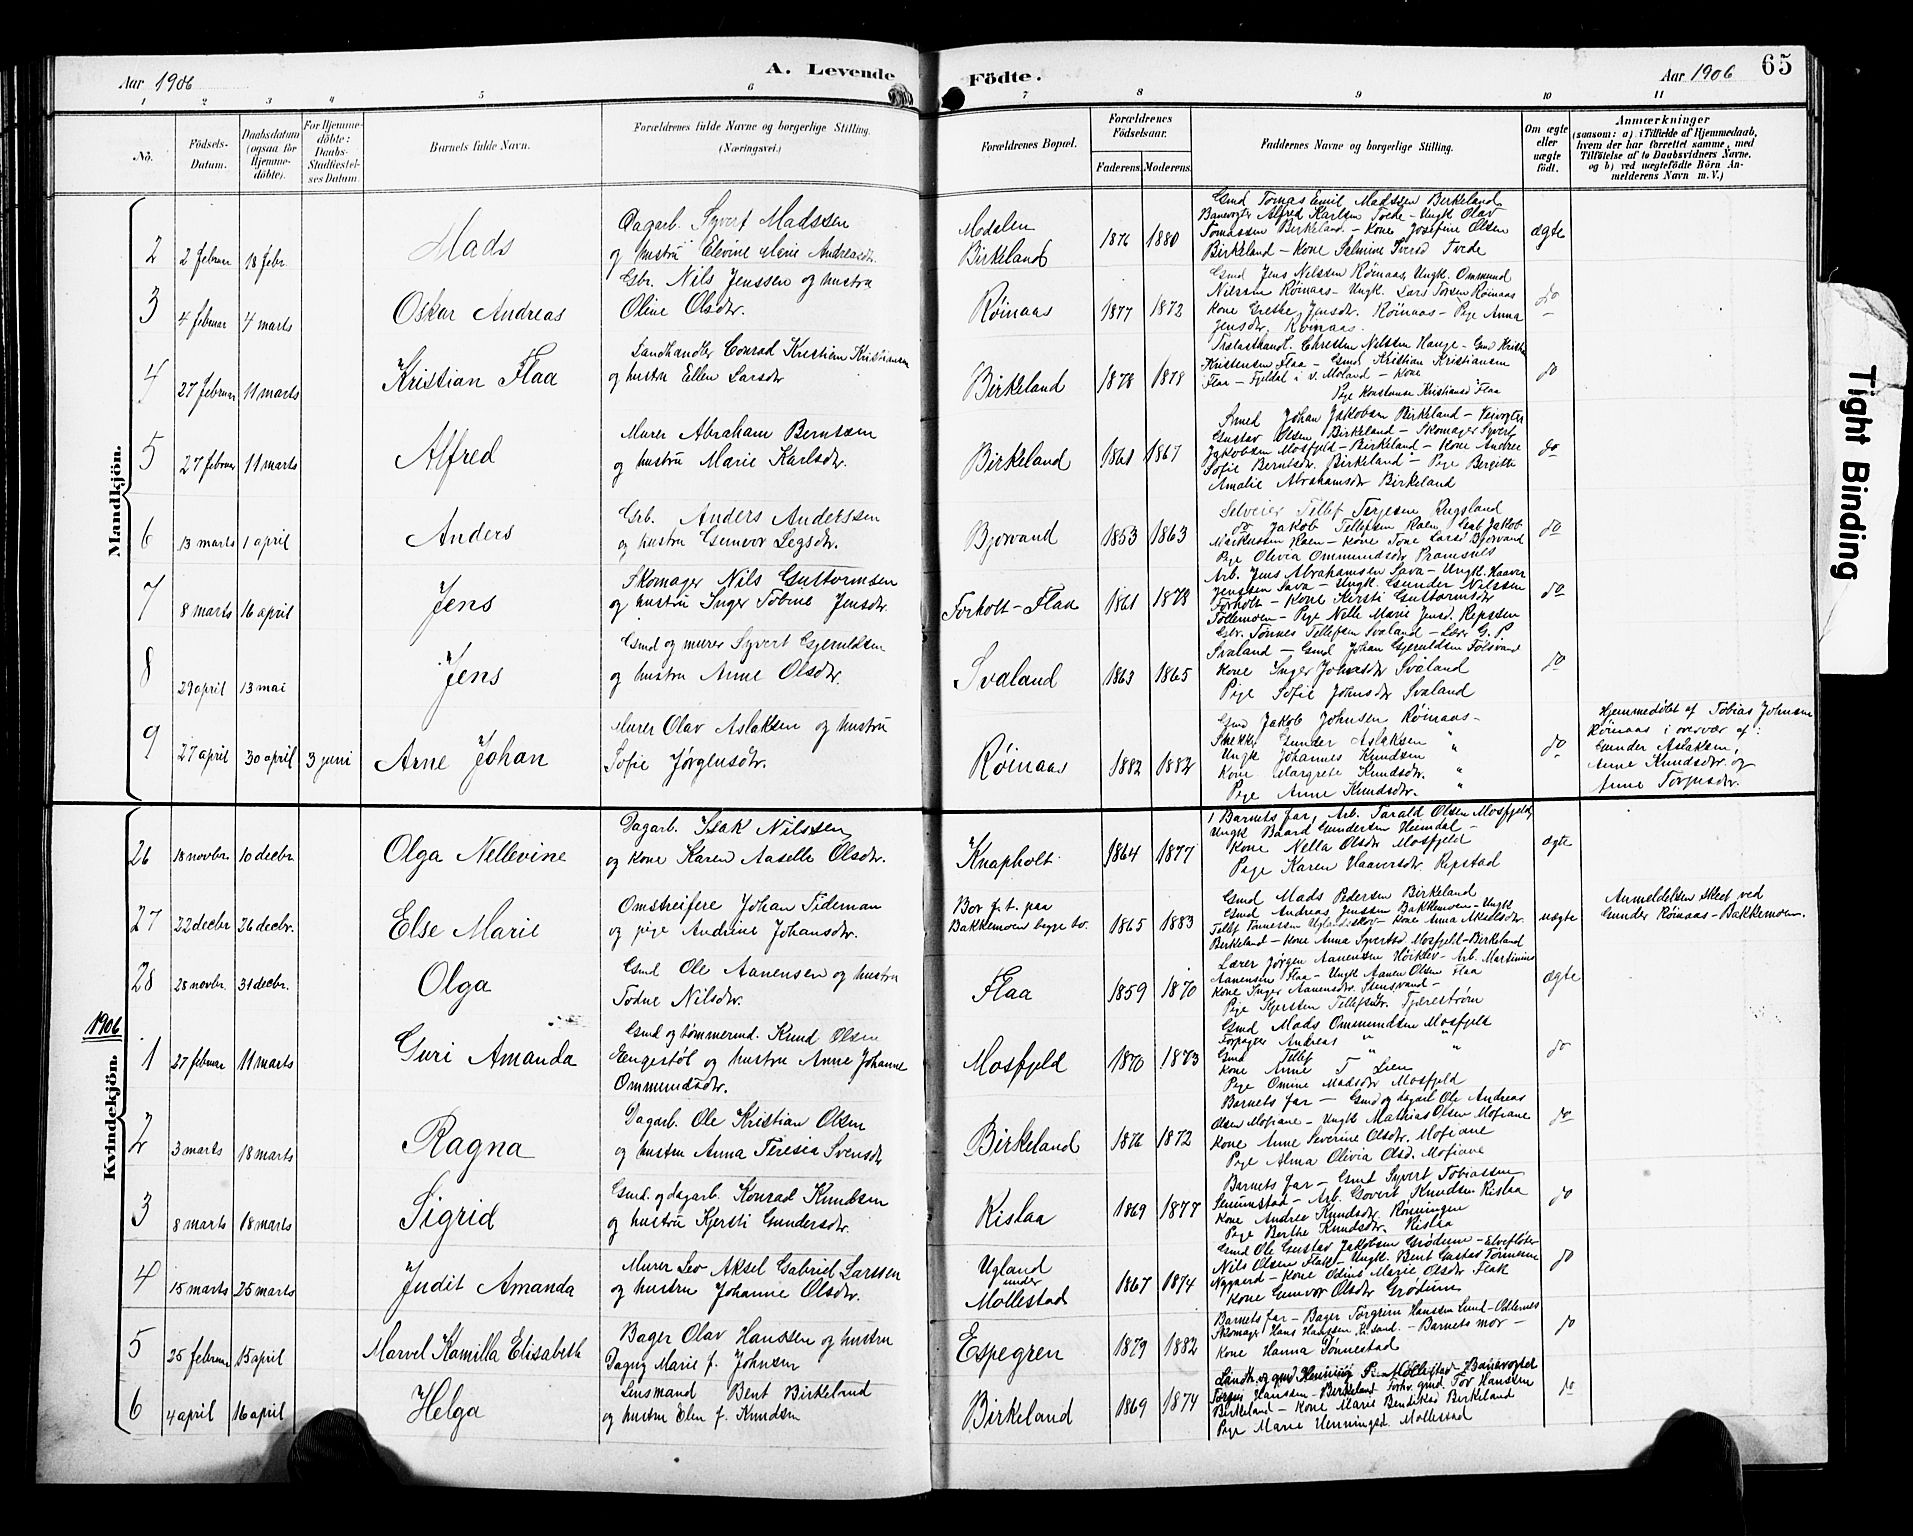 Aar 1906
A. Levende Födte.
Aar 1906
65
1 2 3 4 5 6 7 8 9 10 11
No.
Födsels-Datum.
Daabsdatum (ogsaa för Hjemmedöbte).
For Hjemmedöbte: Daabs-Stadfæstelses Datum.
Barnets fulde Navn.
Forældrenes fulde Navne og borgerlige Stilling. (Næringsvei.)
Forældrenes Bopæl.
Forældrenes Födselsaar.
Faderens. Moderens.
Faddernes Navne og borgerlige Stilling.
Om ægte eller uægte födt.
Anmærkninger
(saasom: a) i Tilfælde af Hjemmedaab, hvem der har forrettet samme, med Tilföielse af to Daabsvidners Navne, og b) ved uægtefödte Börn Anmelderens Navn m. V.)
Mandkjön.
2 2 februar 18 febr. Mads
Dagarb. Syvert Madssen
og hustru Elevine Marie Andreasdtr.
Modalen
Birkeland
1876 1880
Gmd Tomas Emil Madssen Birkeland
Banevogter Alfred Karlsen Tvede - Ungk Olav
Tomassen Birkeland - Kone Josefine Olsen
Birkeland - Kone Selmine Tvede
ægte
3 4 februar 4 marts Oskar Andreas
Gbr. Nils Jenssen og hustru
Oline Olsdtr.
Røinaas
1877 1872
Gmd Jens Nilssen Røinaas, Ungk. Ommund
Nilssen Røinaas - Ungk. Lars Torsen Røinaas
Kone Grethe Jensdr. Røinaas - Pige Anna
Jensdr. Røinaas.
do
4 27 februar 11 marts Kristian Flaa
Landhandler Conrad Kristian Kristiansen
og hustru Ellen Larsdtr
Birkeland
1878 1878
Trælasthandl. Christen Nilssen Hauge - Gmd
Kristensen Flaa - Gmd Kristian Kristiansen
Flaa - Fjeldal i v. Moland - Kone
Pige Konstanse Kristiansd Flaa
do
5 27 februar 11 marts Alfred
Murer Abraham Berntsen
og hustru Marie Karlsdtr.
Birkeland
1861 1867
Smed Johan Jakobsen Birkeland - Veivogter
Gustav Olsen, Birkeland - Skomager Syvert
Jakobsen Mosfjeld - Birkeland - Kone Andrea
Sofie Berntsdr. Birkeland - Pige Bergitte
Amalie Abrahamsdr Birkeland
do
6 13 marts 1 april Anders
Gbr. Anders Anderssen
og hustru Gunvor Legsdtr.
Bjorvand
1853 1863
Selveier Tellef Terjesen Rugsland
do Jakob Tellefsen Kaen, Jakob
Kaen - Kone Tone Larsd Bjorvand
Pige Olivia Ommundsdr
do
7 8 marts 16 april Jens
Skomager Nils Guttormsen
og hustru Inger Tobine Jensdtr.
Torholt - Flaa
1861 1878
Arb. Jens Abrahamsen Sava - Ungk. Haaver
Jenssen Sava - Ungk. Gunder Nilssen
Torholt - Kone Kirsti Guttormsdr
Pige Nelle Marie Jensd. Repssen
do
8 29 april 13 mai Jens
Gmd og murer Syvert Gjeruldsen
og hustru Anne Olsdtr.
Svaland
1863 1865
Gbr. Tønnes Tellefsen Svaland - Lærer G. P.
Svaland - Gmd Johan Gjeruldsen Følsvand
Kone Inger Johnsdr Svaland
Pige Sofie Johnsdr Svaland
do
9 27 april 30 april 3 juni Arne Johan
Murer Olav Aslaksen og hustru
Sofie Jørgensdtr.
Røinaas
1882 1882
Gmd Jakob Johnsen Røinaas -
Snekk. Gunder Aslaksen "
Ungk Johannes Knudsen "
Kone Margrete Knudsdtr. "
Pige Anne Knudsdtr. "
do
Hjemmedöbt af Tobias Johnsen
Røinaas i overvær af:
Gunder Aslaksen,
Anne Knudsdtr og
Anne Torjusdtr.
26 18 novbr. 10 decbr. Olga Nellevine
Dagarb. Isak Nilssen
og kone Karen Aaselle Olsdtr.
Knapholt.
1864 1877
Barnets far, Arb. Tarald Olsen Mosfjeld,
Ungk Baard Gundersen Heimdal -
Kone Nella Olsdr Mosfjeld
Pige Karen Haaversdtr Repstad
ægte
27 22 decbr 26 decbr. Else Marie
Omstreifere Johan Tideman
og pige Andrine Johansdtr.
Bor f.t. paa
Bakkemoen bygge to.
1865 1883
Gmd Mads Pedersen Birkeland
Gmd Andreas Jenssen Bakkemoen - Ungk
Tellef Tomessen Uglandsskov - Kone Anna Akselsdtr
Birkeland - Kone Anna Syvertsd Mosfjeld - Birkeland
uægte
Anmeldelsen skeet ved
Gunder Røinaas - Bakkemoen.
28 28 novbr. 31 decbr. Olga
Gmd Ole Aanensen og hustru
Todne Nilsdtr.
Flaa
1859 1870
Lærer Jørgen Aanensen Høiklev - Arb. Martinius
Aanensen Flaa - Ungk Aanen Olsen Flaa
Kone Inger Aanensdtr. Stensvand -
Pige Kjersten Tellefsdtr. Tjærestrøm
ægte
1906
Kvindekjön.
1 27 februar 11 marts Guri Amanda
Gmd og tømmermd. Knud Olsen
Engestøl og hustru Anne Johanne
Ommundsdtr.
Mosfjeld
1870 1873
Gmd Mads Ommundsen Mosfjeld
Forpagter Andreas " "
Gmd Tellef " "
Kone Anne T Lien
Pige Omine Madsdtr Mosfjeld
do
2 3 marts 18 marts Ragna
Dagarb. Ole Kristian Olsen
og hustru Anna Teresia Svensdtr
Birkeland
1876 1872
Barnets far - Gmd og dagarb Ole Andreas
Olsen Mofiane - Ungk Mathias Olsen Mofiane
Kone Anne Severine Olsdtr. Mofiane
Pige Alma Olivia Olsd. Mofiane
do
3 8 marts 18 marts Sigrid
Gmd. og dagarb. Konrad Knudsen
og hustru Kjersti Gundersdtr.
Rislaa
1869 1877
Barnets far - Gmd Syvert Tobiassen
Senumstad - Arb. Govert Knudsen Rislaa
Kone Andrea Knudsdtr. Rønningen
Pige Berthe Knudsdtr. Rislaa
do
4 15 marts 25 marts Judit Amanda
Murer Leo Aksel Gabriel Larssen
og hustru Johanne Olsdtr.
Ugland
under
Mollestad
1867 1874
Gmd Ole Gustav Jakobsen Grødum - Elvefløder
Nils Olsen Flak - Ungk. Bent Gustav Tommesen
Nygaard - Kone Odine Marie Olsdtr Flak
Kone Gunvor Olsdtr Grødum
do
5 25 februar 15 april Marvel Kamilla Elisabeth
Bager Olav Hanssen og hustru
Dagny Marie f. Johnsen
Espegren
1879 1882
Barnets far - Bager Torgrim Hanssen Lund - Oddernes
Skomager Hans Hanssen K.sand. - Barnets mor -
Kone Hanna Tønnestad
do
6 4 april 16 april Helga
Lensmand Bent Birkeland
og hustru Elen f. Knudsen
Birkeland
1869 1874
Landh. og gmd Henning P. Mollestad - Banevogter
Torgrim Hanssen - Birkeland Forhv. gmd. Tor Hanssen
Birkeland - Kone Marie Bendiksd Birkeland
Pige Marie Henningsd. Mollestad
do
Tight Binding